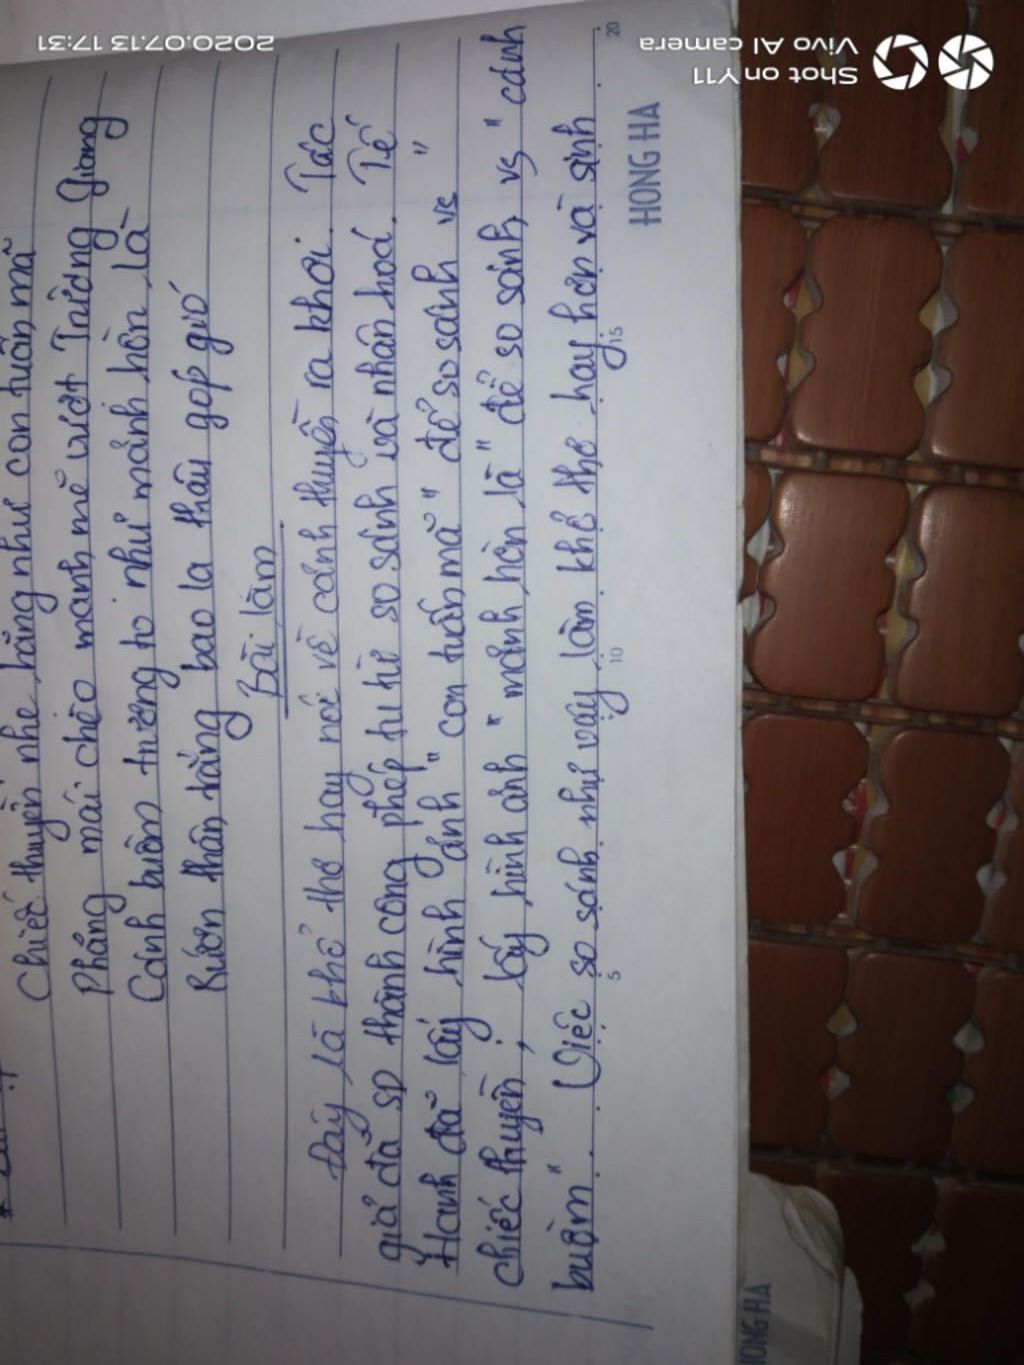 Chiếc thuyền nhẹ hăng như con tuấn mã
Phăng mái chèo mạnh mẽ vượt Trường Giang
Cánh buồm trương to như mảnh hồn làng
Rướn thân trắng bao la thâu góp gió
Bài làm
Đây là khổ thơ hay nói về cảnh thuyền ra khơi. Tác
giả đã sp thành công phép tu từ so sánh và nhân hoá. Tế
Hanh đã lấy hình ảnh "con tuấn mã" để so sánh vs "
chiếc thuyền, lấy hình ảnh "mảnh hồn là" để so sánh vs "cánh
buồm". Việc so sánh như vậy làm khổ thơ hay hơn và sinh
5 10 15 20
HONG HA
HONG HA
Shot on Y11
Vivo AI camera
2020.07.13 17:31